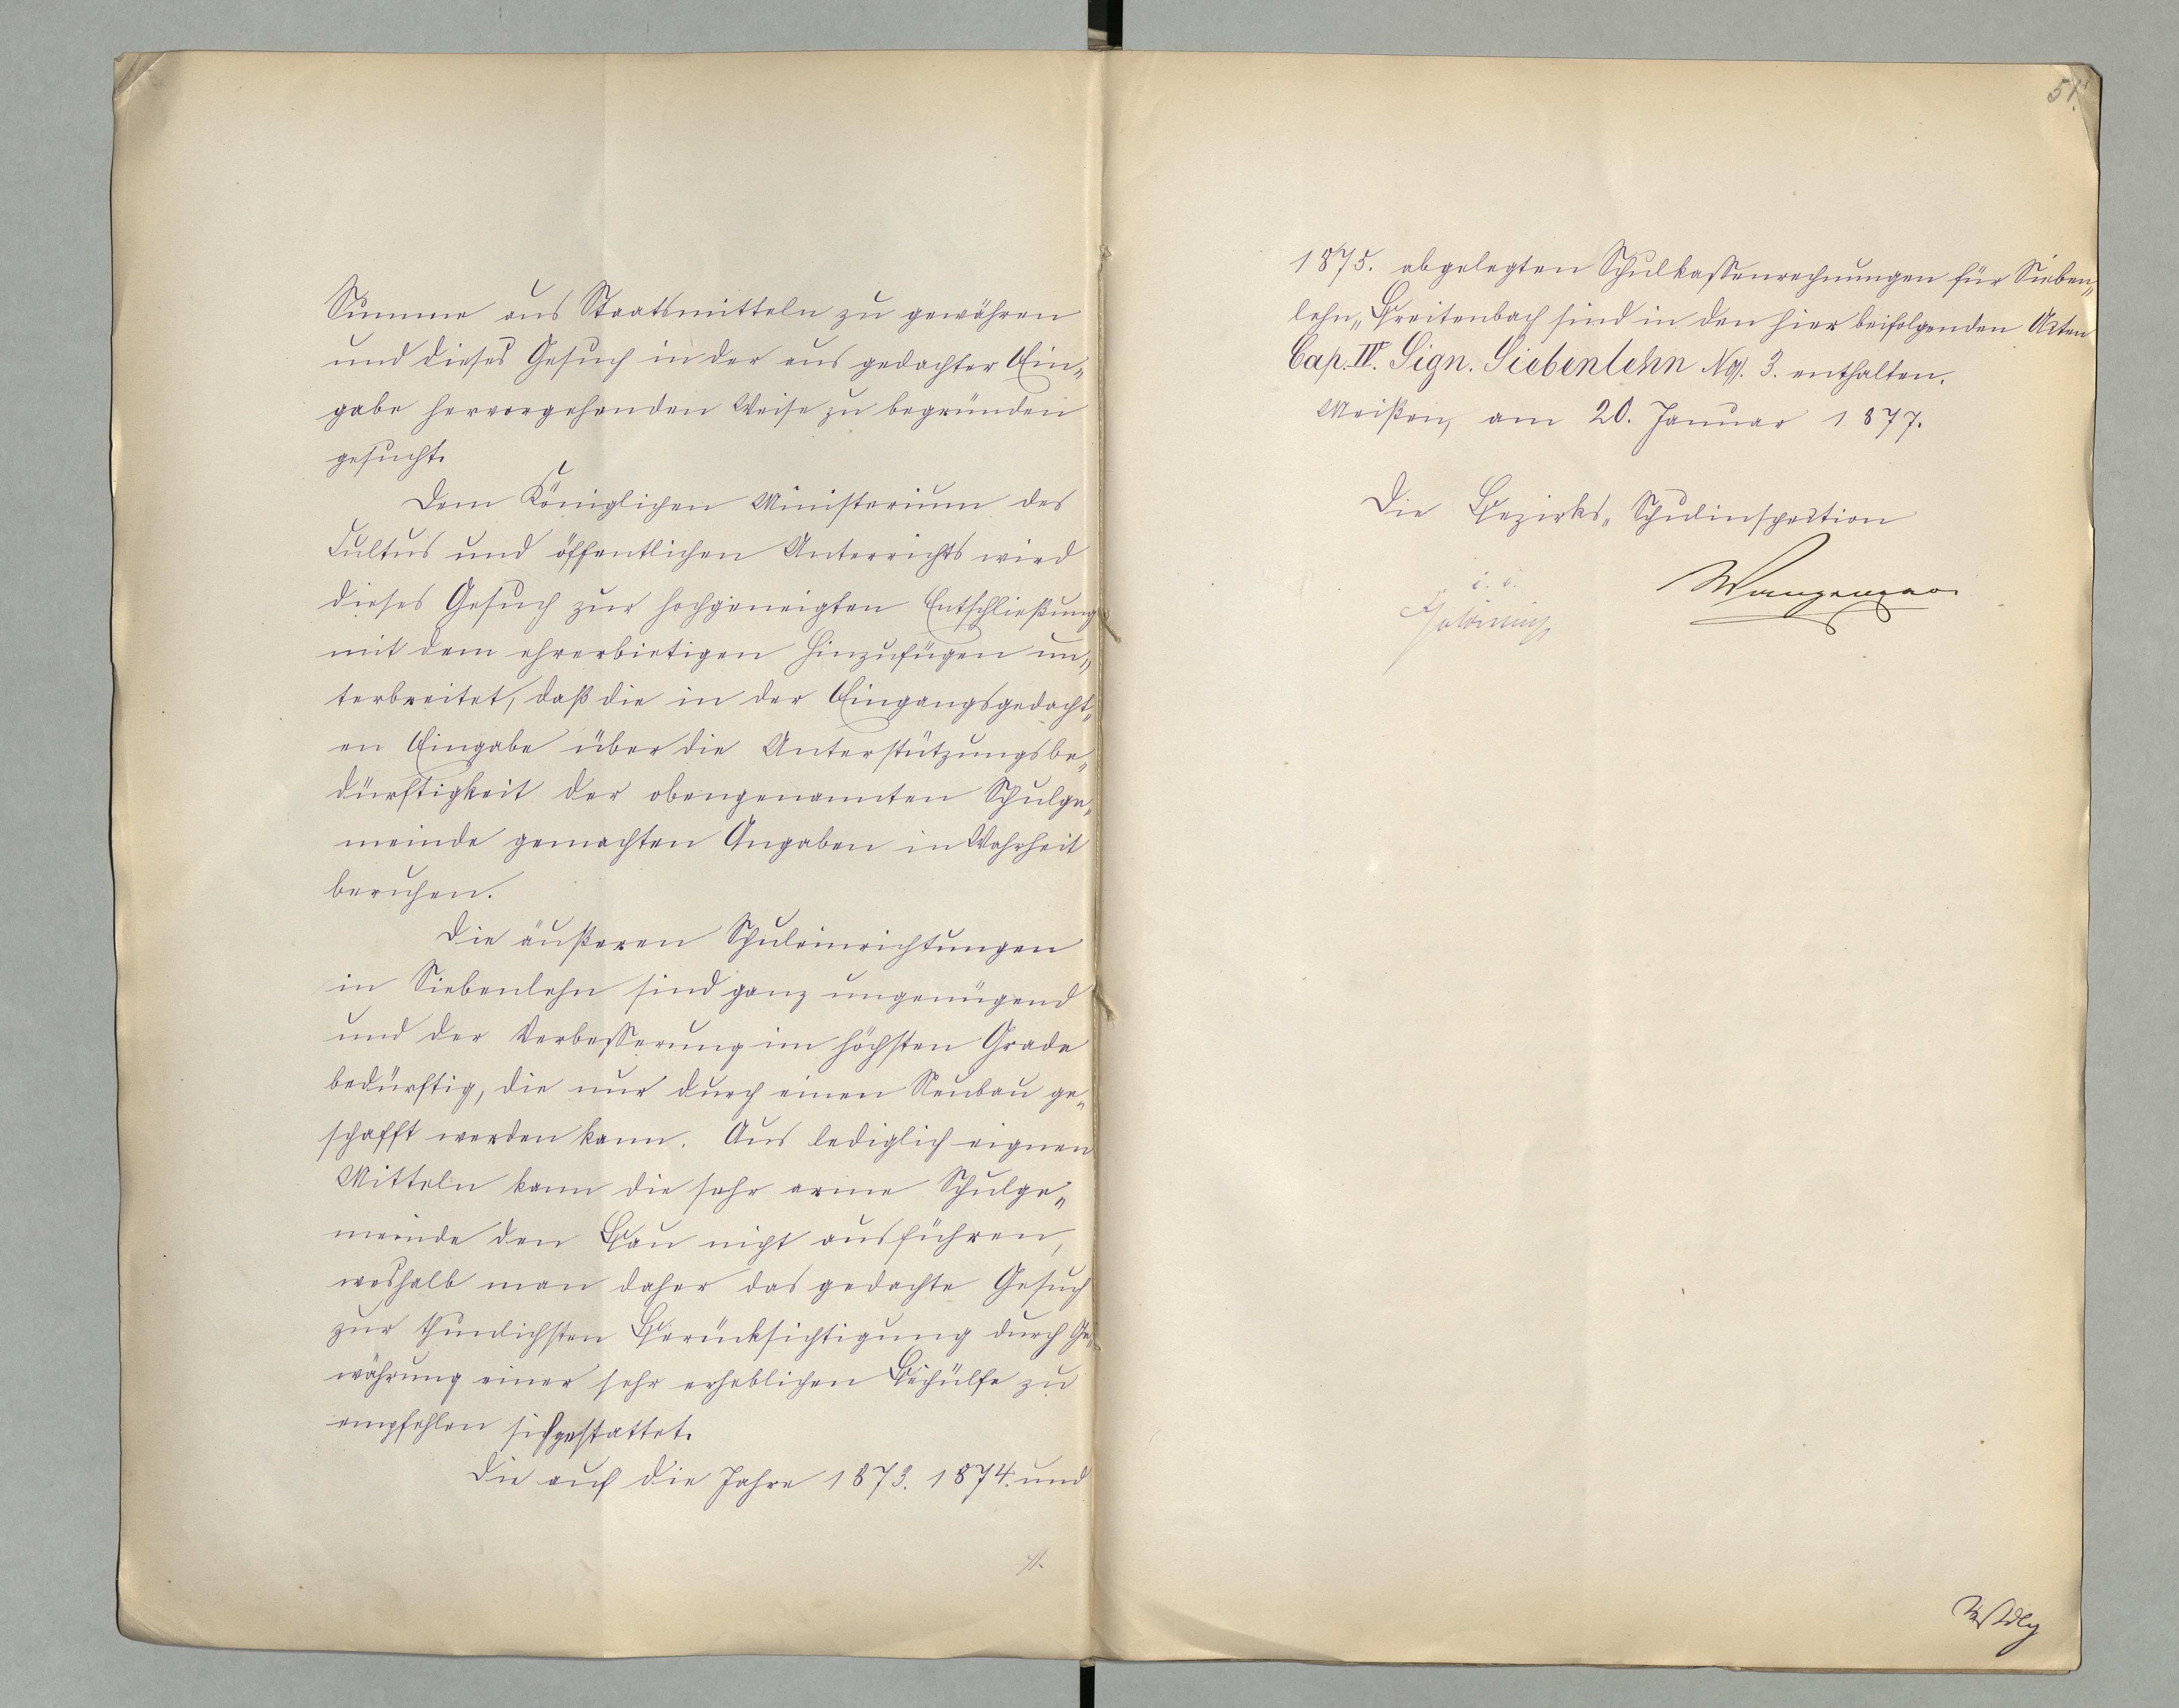 Summe aus Staatsmitteln zu gewähren
und dieses Gesuch in der aus gedachter Ein„
gabe hervorgehenden Weise zu begründen
gesucht.
Dem Königlichen Ministerium des
Cultus und öffentlichen Unterrichts wird
dieses Gesuch zur hochgeneigten Entschließung
mit dem ehrerbietigen Hinzufügen un„
terbreitet, daß die in der Eingangsgedacht„
en Eingabe über die Unterstützungsbe„
dürftigkeit der obengenannten Schulge„
meinde gemachten Angaben in Wahrheit
beruhen.
Die äußeren Schuleinrichtungen
in Siebenlehn sind ganz ungenügend
und der Verbesserung im höchsten Grade
bedürftig, die nur durch einen Neubau ge„
schafft werden kann. Aus lediglich eignen
Mitteln kann die sehr arme Schulge„
meinde den Bau nicht ausführen,
weshalb man daher das gedachte Gesuch
zur thunlichsten Berücksichtigung durch Ge„
währung einer sehr erheblichen Beihülfe zu
empfehlen sich gestattet.
Die auf die Jahre 1873. 1874. und
51.
1875. abgelegten Schulkassenrechnungen für Sieben„
lehn„Breitenbach sind in den hier beifolgenden Akten
Cap. IV. Sign. Siebenlehn No. 3. enthalten.
Meißen, am 20. Januar 1877.
Die Bezirks„Schulinspection
Wangemann